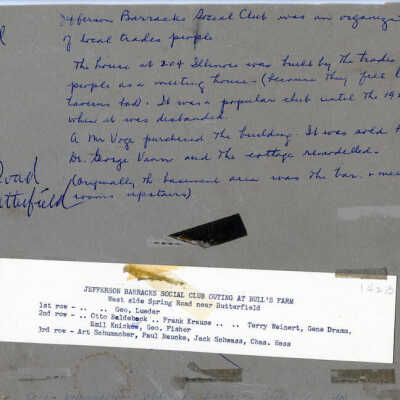 Jefferson Barracks Social Club was an organiza
of local trades people
The house at 204 Illinois was built by the trades
people as a meeting house - (because they felt
taverns bad). It was a popular club until the 19
when it was disbanded.
A Mr Voge purchased the building. It was sold
Dr. George Vann and the cottage remodelled.
(originally the basement area was the bar + mee
rooms upstairs)
Road
utterfield
1428
JEFFERSON BARRACKS SOCIAL CLUB OUTING AT BULL'S FARM
West side Spring Road near Butterfield
1st row - .. .. Geo, Lueder
2nd row - .. Otto Baldeback .. Frank Krause .. .. Terry Weinert, Gene Drams,
Emil Knickow, Geo. Fisher
3rd row - Art Schumacher, Paul Baucke, Jack Schwass, Chas. Hess